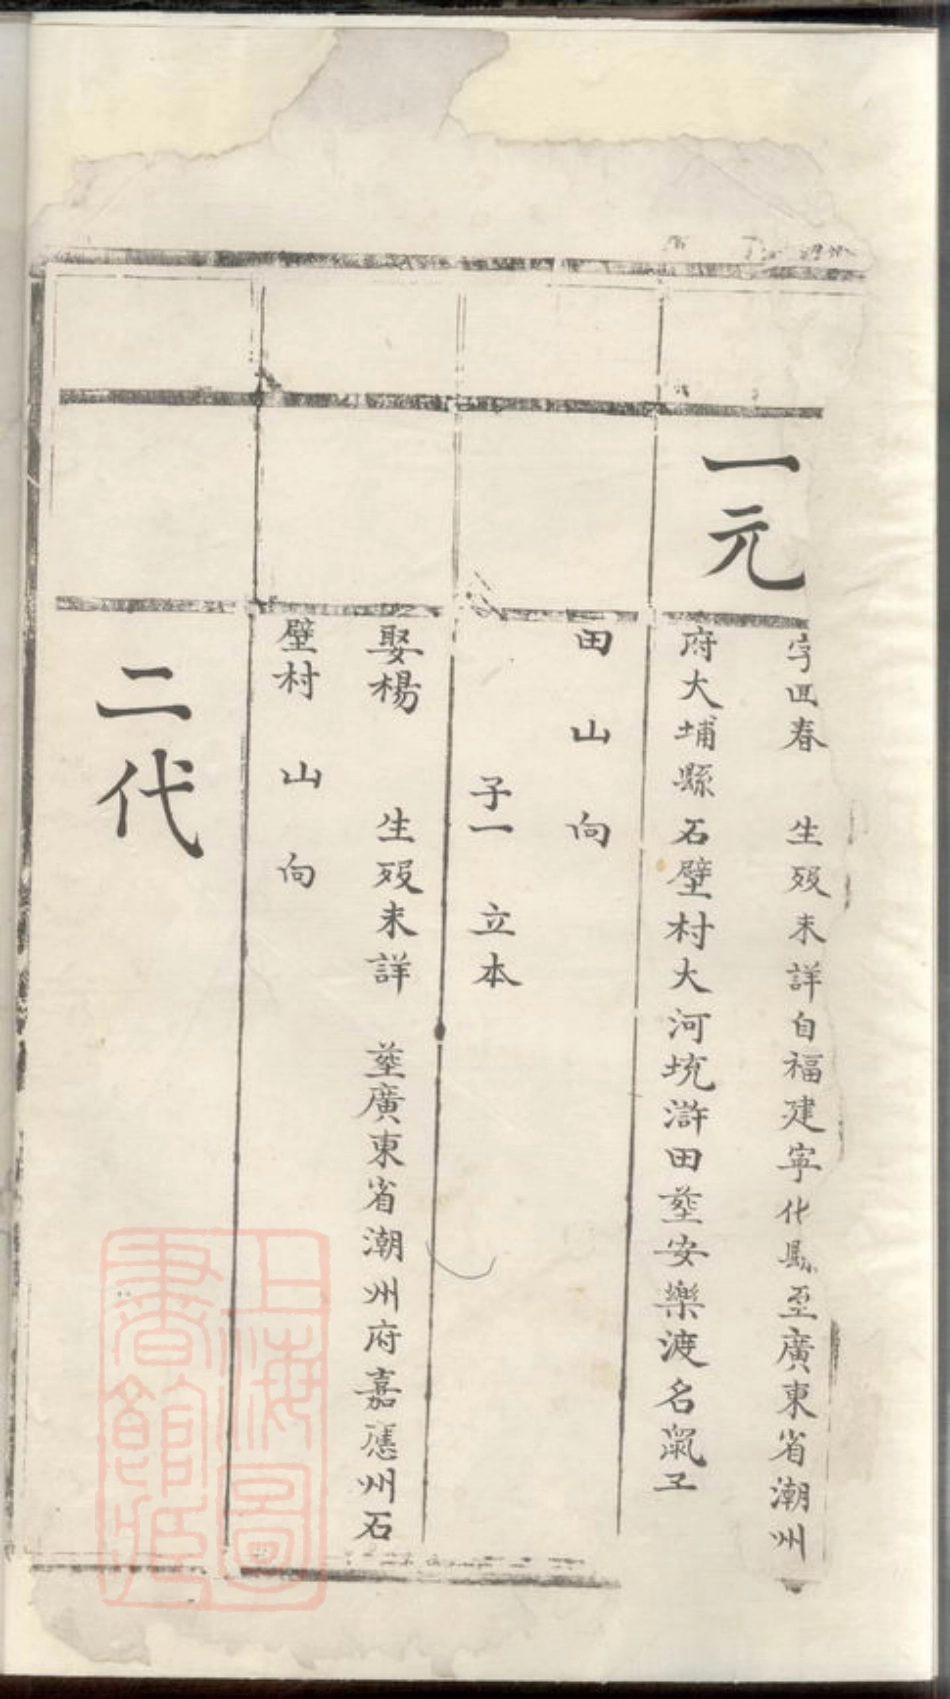 一元
字回春 生歿未詳自福建寧化縣至廣東省潮州
府大埔縣石壁村大河坑滸田塟安樂渡名鼠王
田山向
子一 立本
娶楊 生歿未詳 塟廣東省潮州府嘉應州石
壁村 山向
二代
上海圖
書館藏